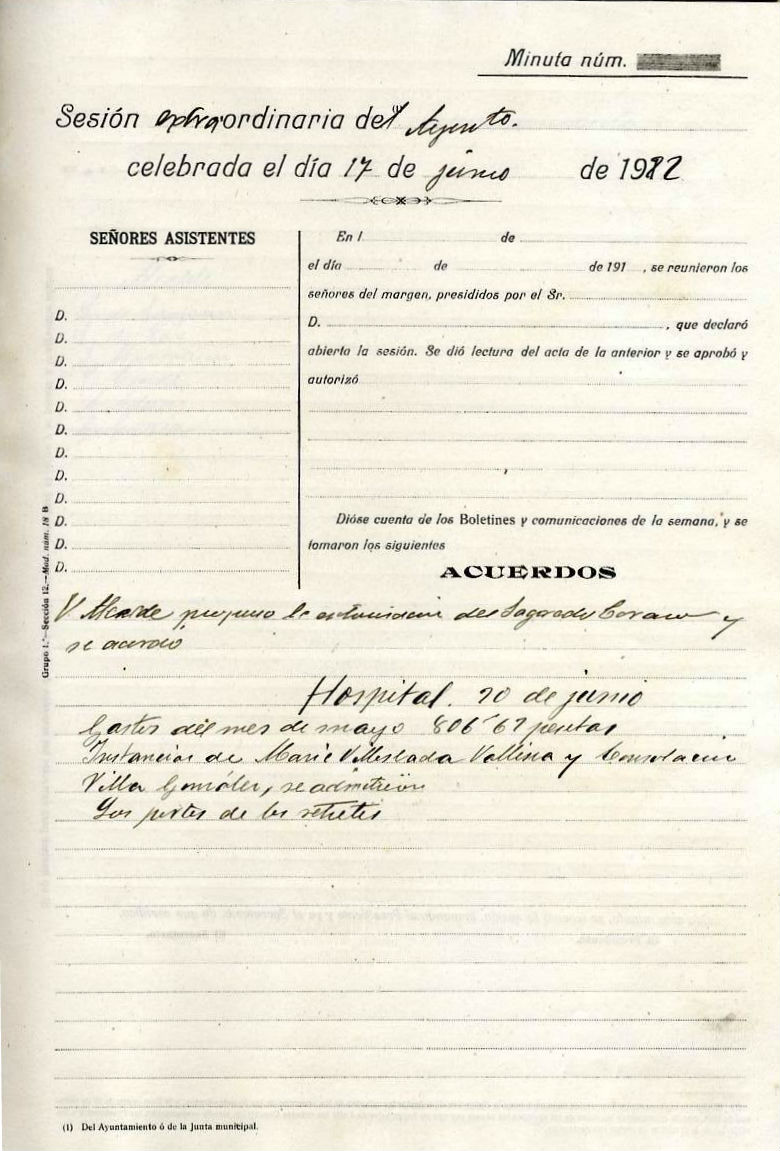 Minuta núm.
Sesión extraordinaria del (1) Ayunto.
celebrada el día 17 de junio de 1922
SEÑORES ASISTENTES
D.
D.
D.
D.
D.
D.
D.
D.
D.
D.
D.
D.
En l de
el día de de 191 , se reunieron los
señores del margen, presididos por el Sr.
D. , que declaró
abierta la sesión. Se dió lectura del acta de la anterior y se aprobó y
autorizó
Dióse cuenta de los Boletines y comunicaciones de la semana, y se
tomaron los siguientes
ACUERDOS
Alcalde propuso la del Sagrado Corazon y
se acordó
Hospital. 20 de junio
Gastos del mes de mayo 806'67 pesetas
Instancias de Villeslada Vallina y Consolacion
Villa González, se admitieron
Los partes de los retretes
Grupo 1.º—Sección 12.—Mod. núm. 18 B
(1) Del Ayuntamiento ó de la Junta municipal.